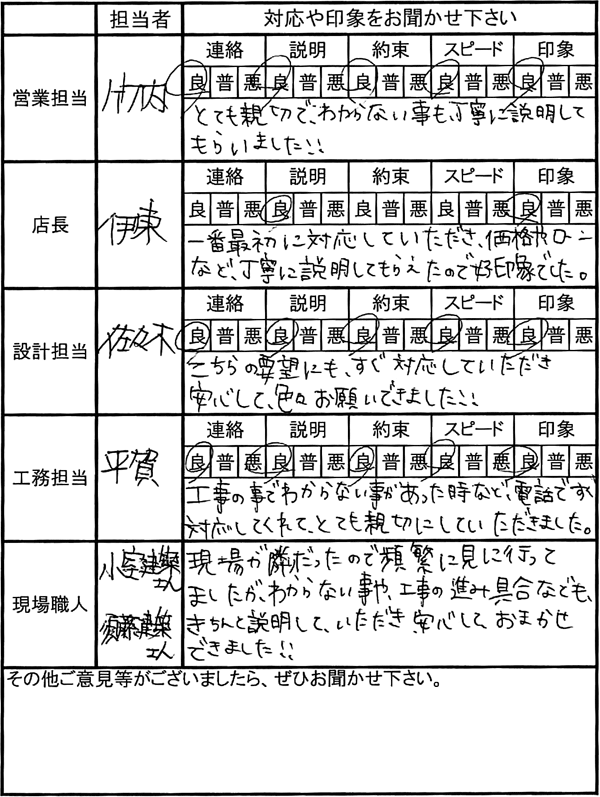 担当者 対応や印象をお聞かせ下さい
営業担当 竹内
連絡 説明 約束 スピード 印象
良 普 悪 良 普 悪 良 普 悪 良 普 悪 良 普 悪
とても親切で、わからない事も、丁寧に説明して
もらいました!!
店長 伊東
連絡 説明 約束 スピード 印象
良 普 悪 良 普 悪 良 普 悪 良 普 悪 良 普 悪
一番最初に対応していただき、価格やローン
など、丁寧に説明してもらえたので好印象でした。
設計担当 佐々木
連絡 説明 約束 スピード 印象
良 普 悪 良 普 悪 良 普 悪 良 普 悪 良 普 悪
こちらの要望にも、すぐ対応していただき
安心して、色々お願いできました!!
工務担当 平賀
連絡 説明 約束 スピード 印象
良 普 悪 良 普 悪 良 普 悪 良 普 悪 良 普 悪
工事の事でわからない事があった時など、電話ですぐ
対応してくれて、とても親切にしていただきました。
現場職人
小室建築
さん
建築
さん
現場が隣だったので頻繁に見に行って
ましたが、わからない事や、工事の進み具合なども、
きちんと説明して、いただき、安心して、おまかせ
できました!!
その他ご意見等がございましたら、ぜひお聞かせ下さい。